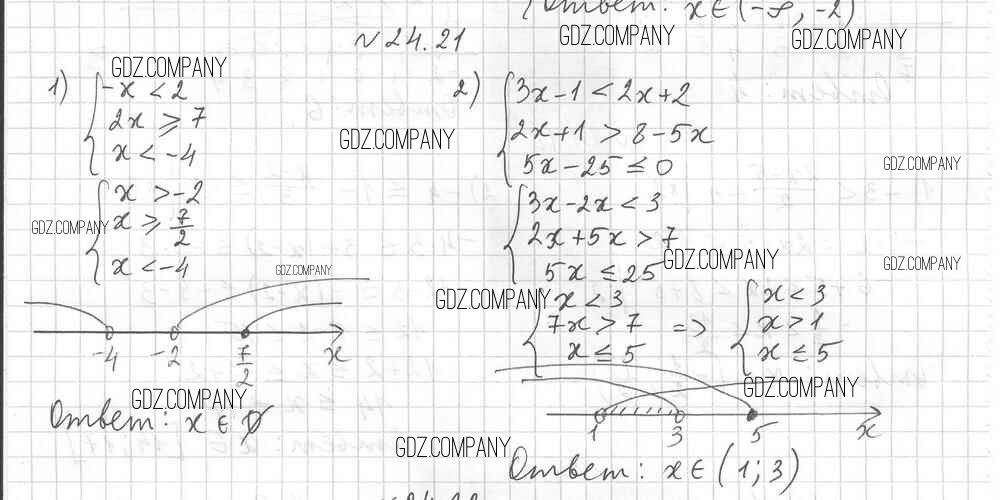 Ответ: x ∈ (-∞, -2)
№ 24.21
GDZ.COMPANY
GDZ.COMPANY
GDZ.COMPANY
1)
-x < 2
2x ⩾ 7
x < -4
x > -2
x ⩾ 7/2
x < -4
GDZ.COMPANY
GDZ.COMPANY
-4 -2 7/2 x
GDZ.COMPANY
Ответ: x ∈ ∅
GDZ.COMPANY
2)
3x-1 < 2x+2
2x+1 > 8-5x
5x-25 ≤ 0
GDZ.COMPANY
3x-2x < 3
2x+5x > 7
5x ≤ 25
GDZ.COMPANY
GDZ.COMPANY
GDZ.COMPANY
x < 3
7x > 7
x ≤ 5
=>
x < 3
x > 1
x ≤ 5
GDZ.COMPANY
1 3 5 x
GDZ.COMPANY
Ответ: x ∈ (1; 3)